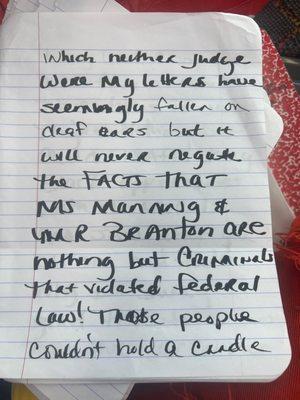 Which neither Judge
were My letters have
seemingly fallen on
deaf ears but it
will never negate
the FACTS THAT
MS Manning &
MR BRANTON are
nothing but CRIMINALS
that violated federal
Law! Those people
couldn't hold a candle